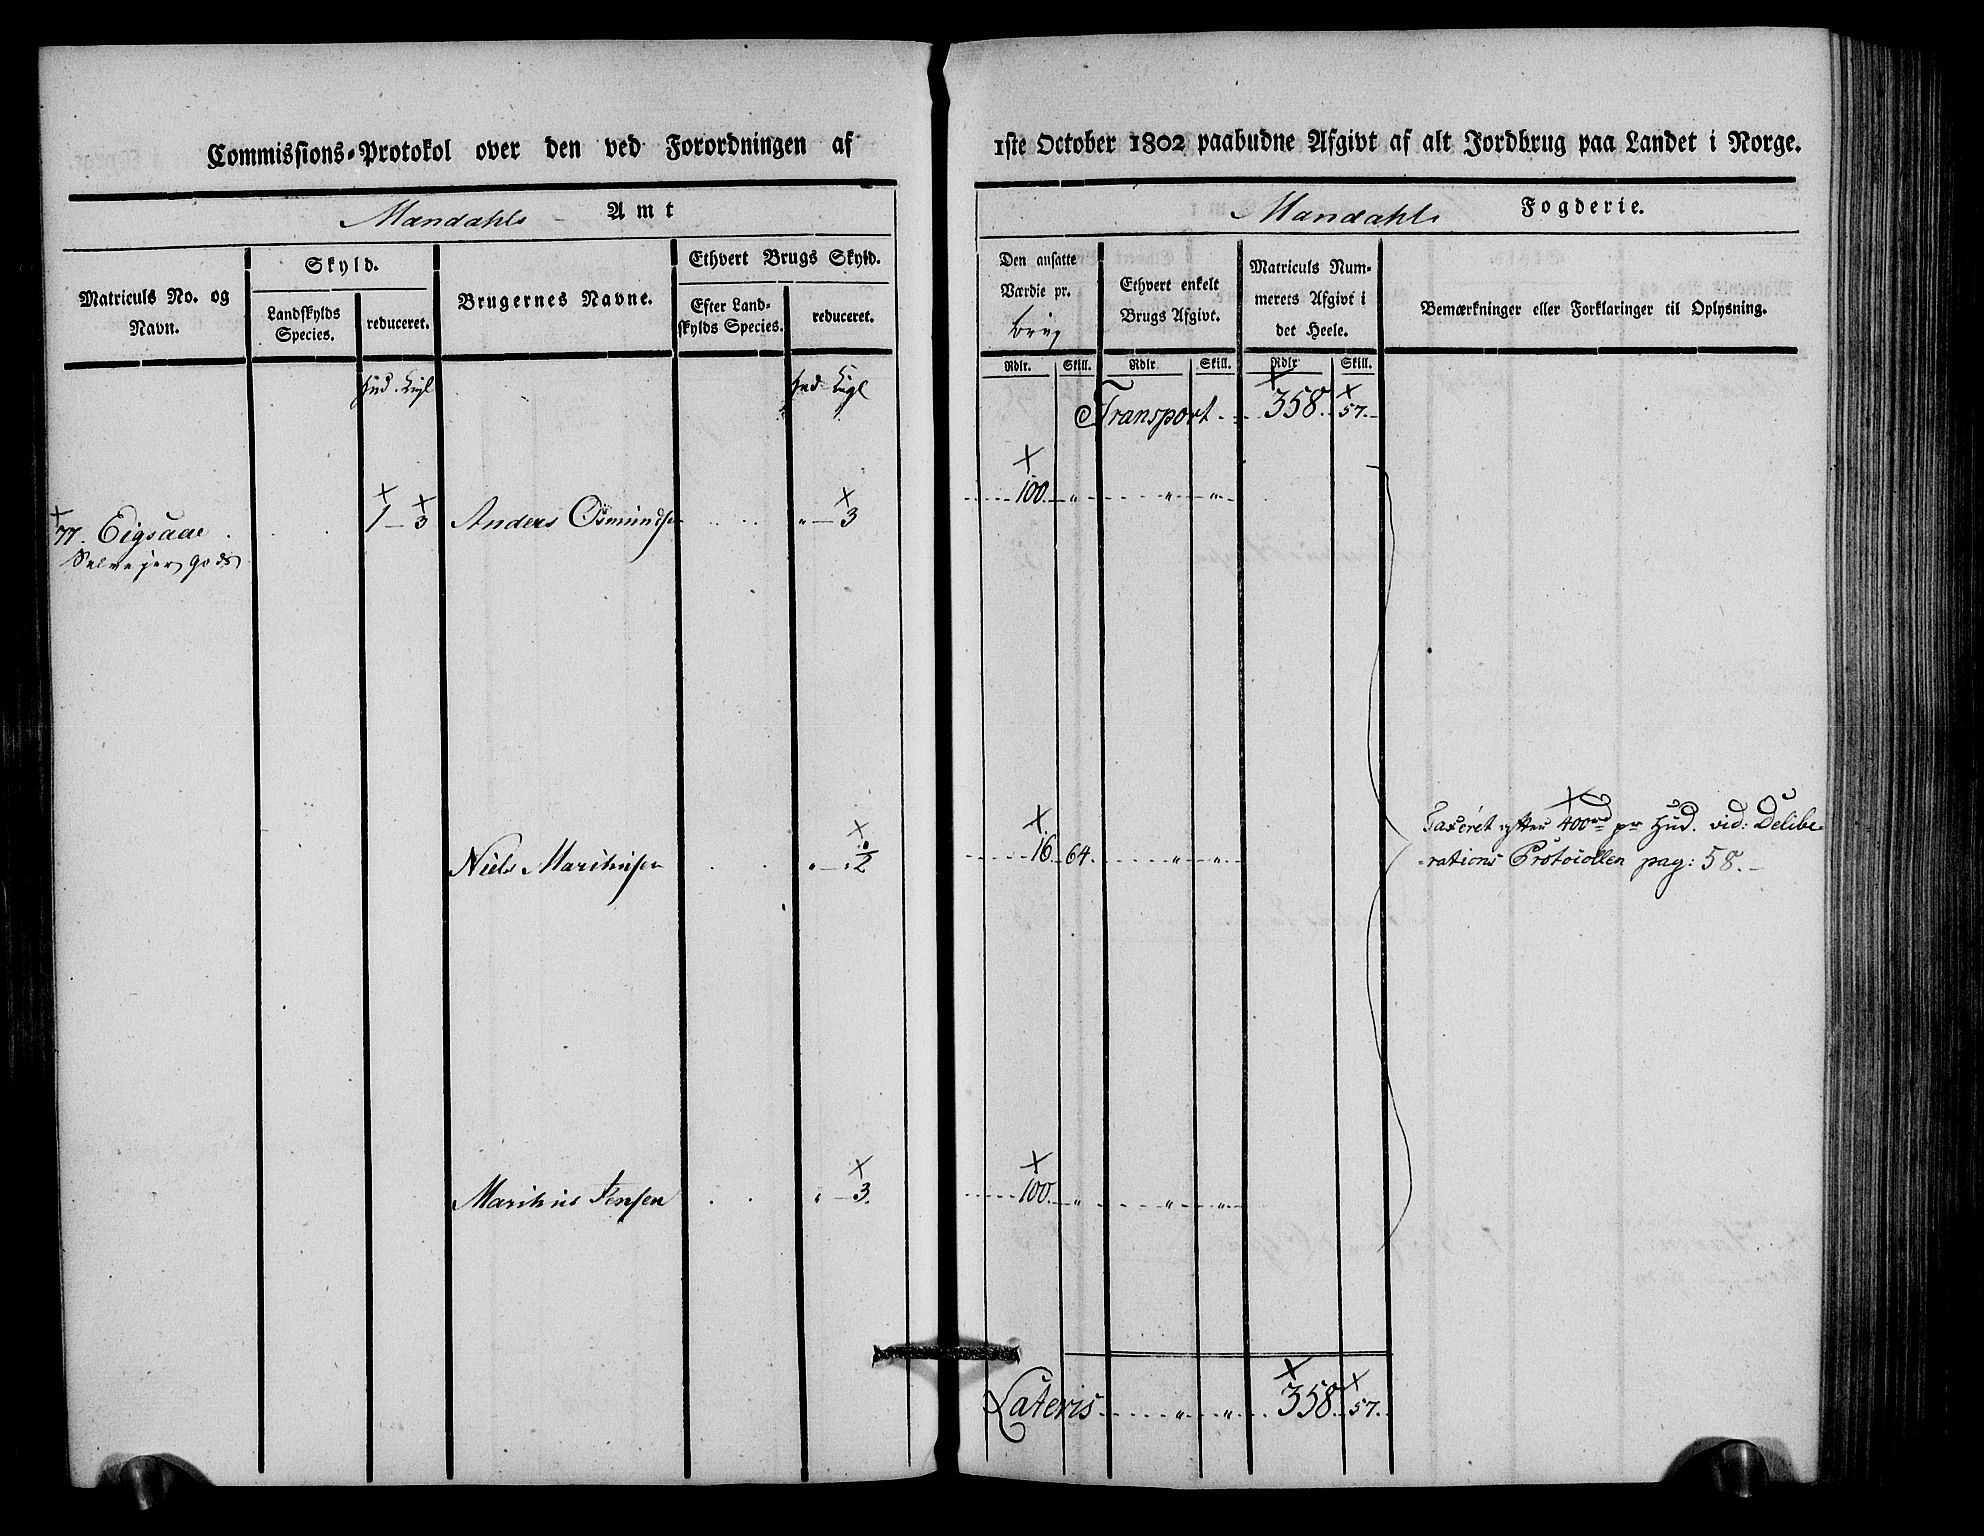 Commissions-Protokol over den ved Forordningen af 1ste October 1802 paabudne Afgivt af alt Jordbrug paa Landet i Norge.
Mandahls Amt
Mandahls Fogderie.
Matriculs No. og Navn.
Skyld.
Landskylds Species.
reduceret.
Brugernes Navne.
Ethvert Brugs Skyld.
Efter Landskylds Species.
reduceret.
Den ansatte Værdie pr. brug
Ethvert enkelt Brugs Afgivt.
Matriculs Nummerets Afgivt i det Heele.
Bemærkninger eller Forklaringer til Oplysning.
Rdlr. Skill. Rdlr. Skill. Rdlr. Skill.
Hud. Engl Hud Engl
Transport 358. 57.
77. Eigsaae 1 - 3 Anders Osmundsen " - 3 100. " " "
Selvejer gods
Niels Marthinsen " - ½ 16. 64. " "
Taxeret efter 400rd pr Hud. vid: Delibe
rations Protocollen pag: 58.
Marthin Jensen " - 3. 100. " " "
Lateris " " 358. 57.